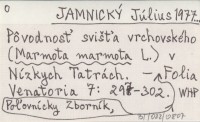 0 JAMNICKÝ Július 1977...
Pôvodnosť svišťa vrchovského
(Marmota marmota L.) v
Nízkych Tatrách. – Folia
Venatoria 7: 297-302. WHP
Poľovnícky Zborník,